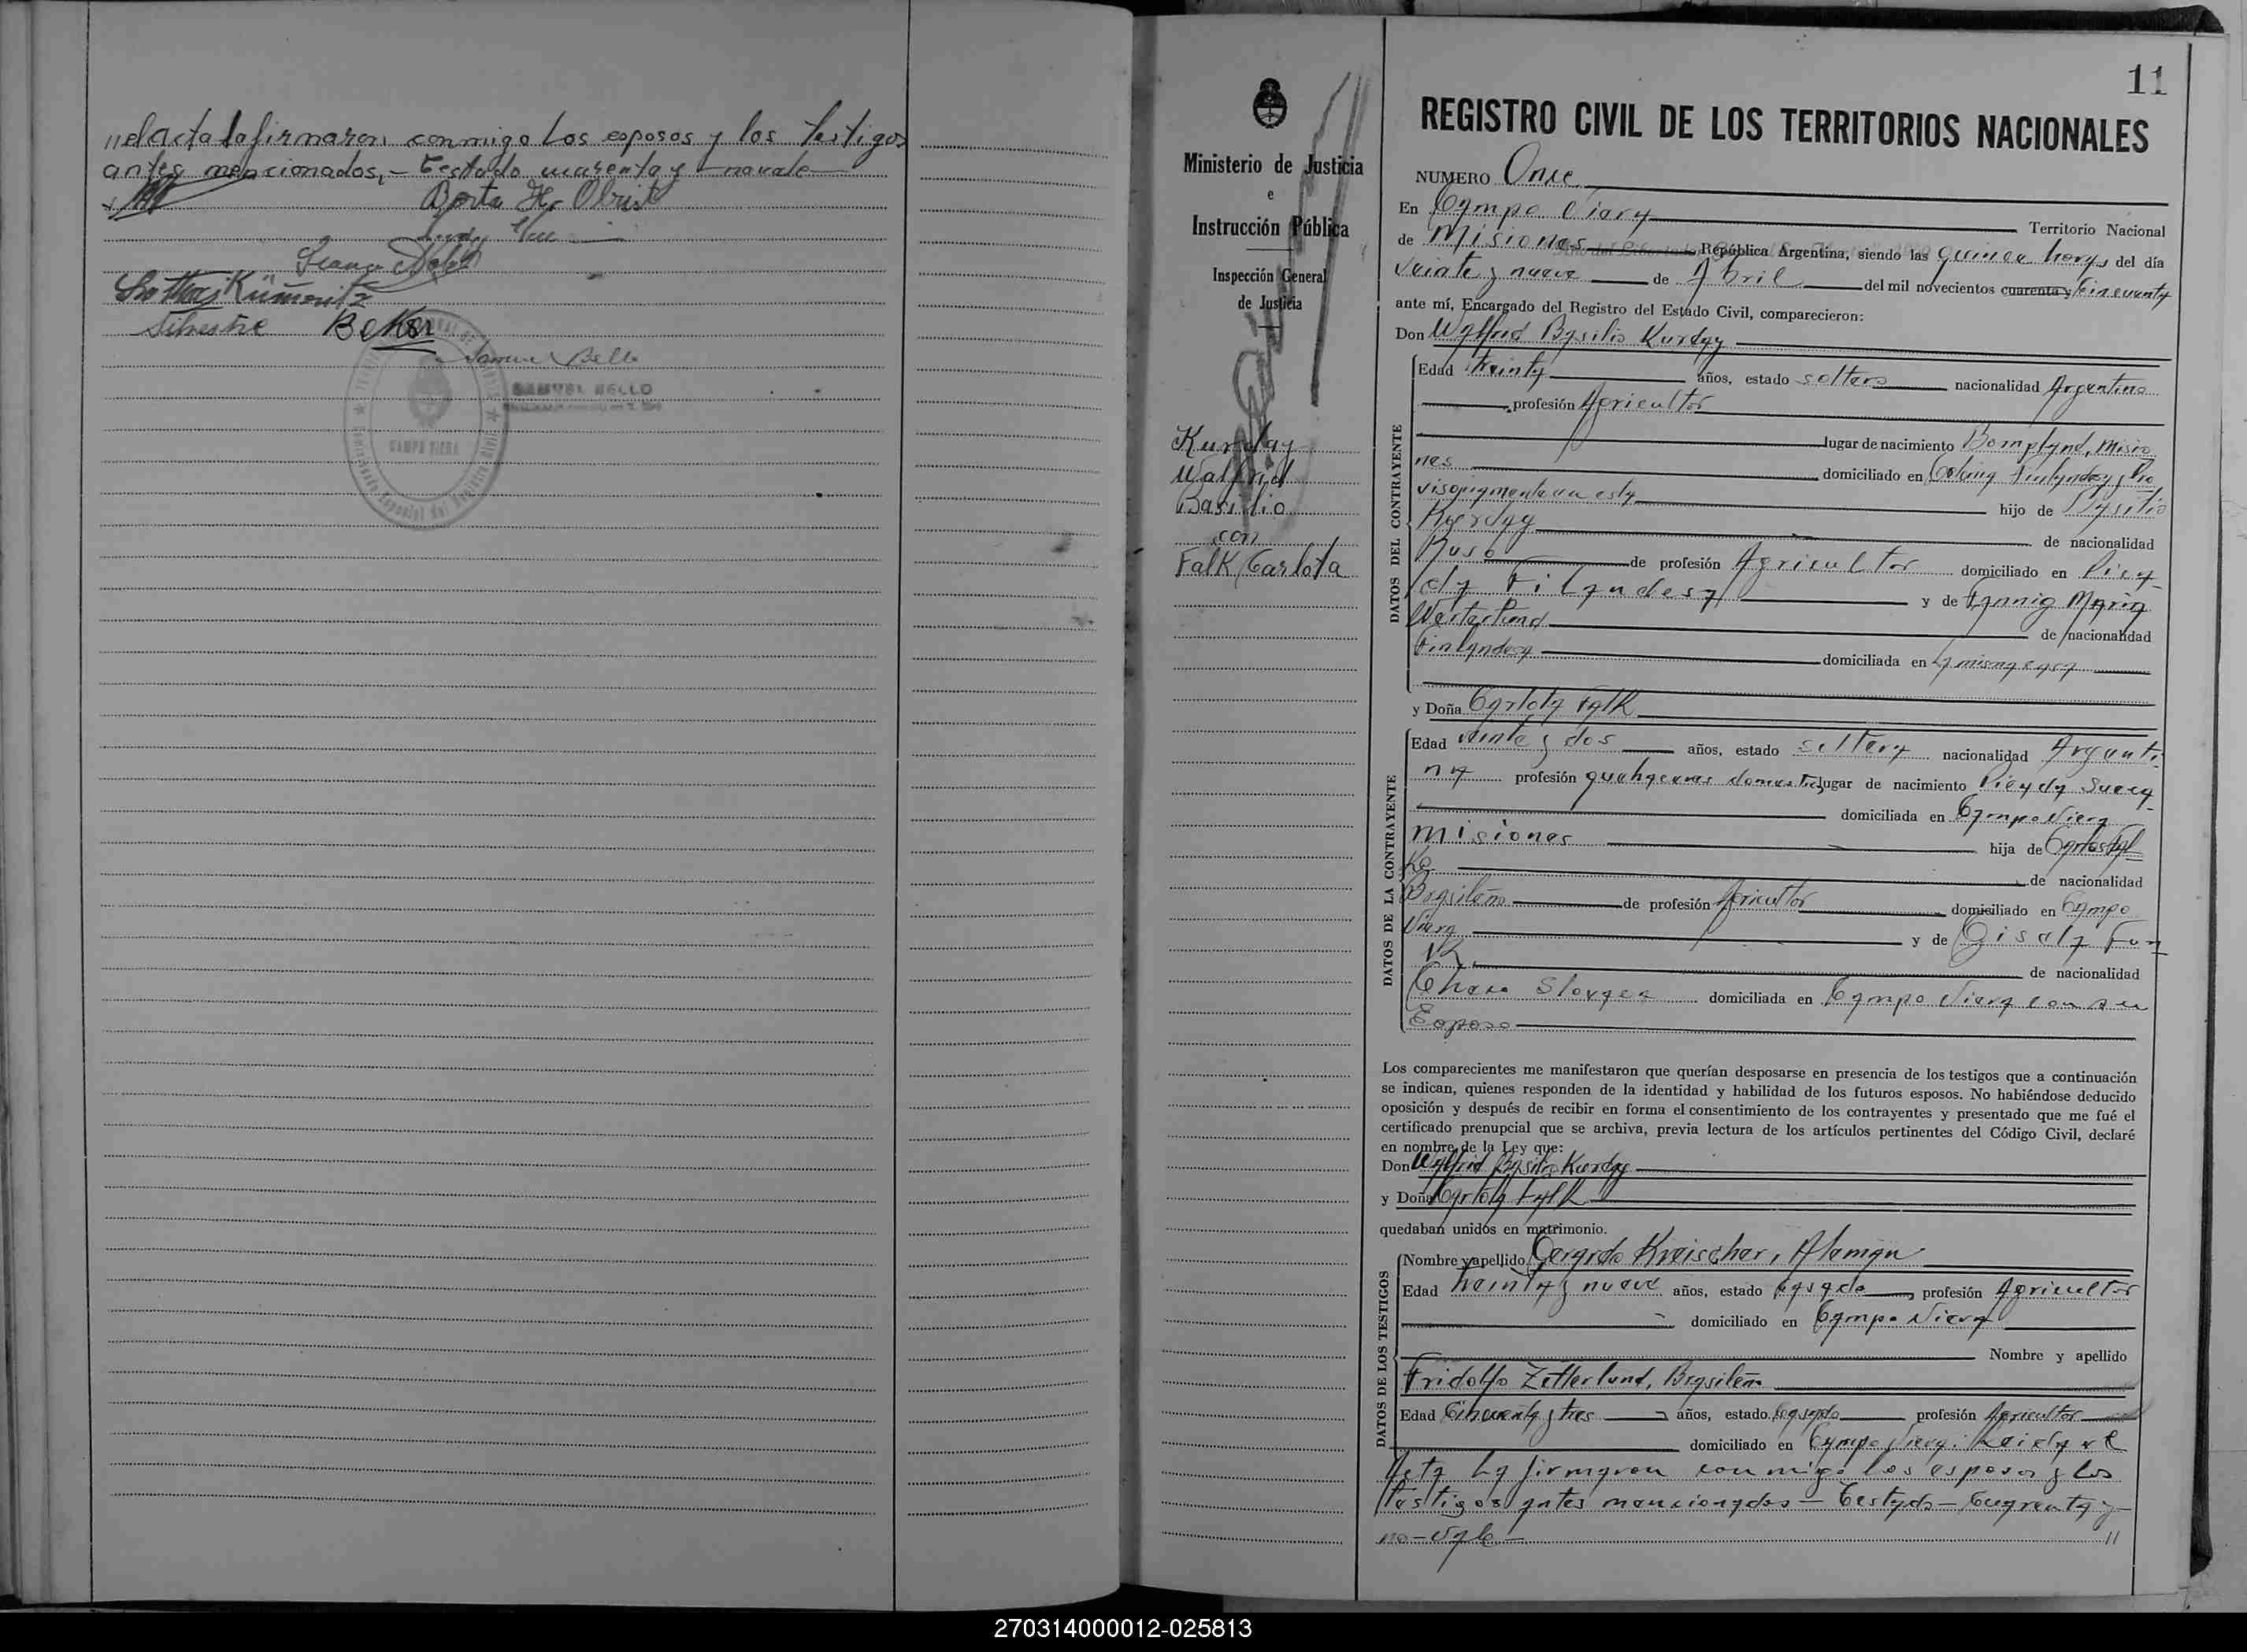 //el acta la firmaron conmigo los esposos y los testigos
antes mencionados,- Testado cuarenta y no vale
Berta H. Obrist
Lothar Kümoritz
Silvestre Beker
Samuel Bello
SAMUEL BELLO
CAMPO VIERA
11
REGISTRO CIVIL DE LOS TERRITORIOS NACIONALES
Ministerio de Justicia
e
Instrucción Pública
Inspección General
de Justicia
Kurday
Walfrid
Basilio
con
Falk Carlota
NUMERO Once
En Campo Viera Territorio Nacional
de Misiones República Argentina, siendo las quince horas del día
veinte y nueve de Abril del mil novecientos cuarenta y cincuenta
ante mí, Encargado del Registro del Estado Civil, comparecieron:
Don Walfrid Basilio Kurday
DATOS DEL CONTRAYENTE
Edad treinta años, estado soltero nacionalidad Argentino
profesión Agricultor
lugar de nacimiento Bompland, Misio
nes domiciliado en Colonia Finlandesa, Pro
visoriamente en esta hijo de Basilio
Kurday de nacionalidad
Ruso de profesión Agricultor domiciliado en Pica
da Filandesa y de Fannig Maria
Westerlund de nacionalidad
Finlandesa domiciliada en la misma casa
y Doña Carlota Falk
DATOS DE LA CONTRAYENTE
Edad veinte y dos años, estado soltera nacionalidad Argenti
na profesión quehaceres domest lugar de nacimiento Picada Sueca
domiciliada en Campo Viera
Misiones hija de Carlos Fal
k de nacionalidad
Brasileño de profesión Agricultor domiciliado en Campo
Viera y de Gisela Fun
k de nacionalidad
Checo Slovaca domiciliada en Campo Viera con su
Esposo
Los comparecientes me manifestaron que querían desposarse en presencia de los testigos que a continuación
se indican, quienes responden de la identidad y habilidad de los futuros esposos. No habiéndose deducido
oposición y después de recibir en forma el consentimiento de los contrayentes y presentado que me fué el
certificado prenupcial que se archiva, previa lectura de los artículos pertinentes del Código Civil, declaré
en nombre de la Ley que:
Don Walfrid Basilio Kurday
y Doña Carlota Falk
quedaban unidos en matrimonio.
DATOS DE LOS TESTIGOS
Nombre y apellido Gerardo Kreischer, Aleman
Edad treinta y nueve años, estado casado profesión Agricultor
domiciliado en Campo Viera
Nombre y apellido
Fridolfo Zetterlund, Brasileño
Edad Cincuenta y tres años, estado casado profesión Agricultor
domiciliado en Campo Viera. Leida el
Acta la firmaron conmigo los esposos y los
testigos antes mencionados - Testado - Cuarenta y -
no - vale - //
270314000012-025813